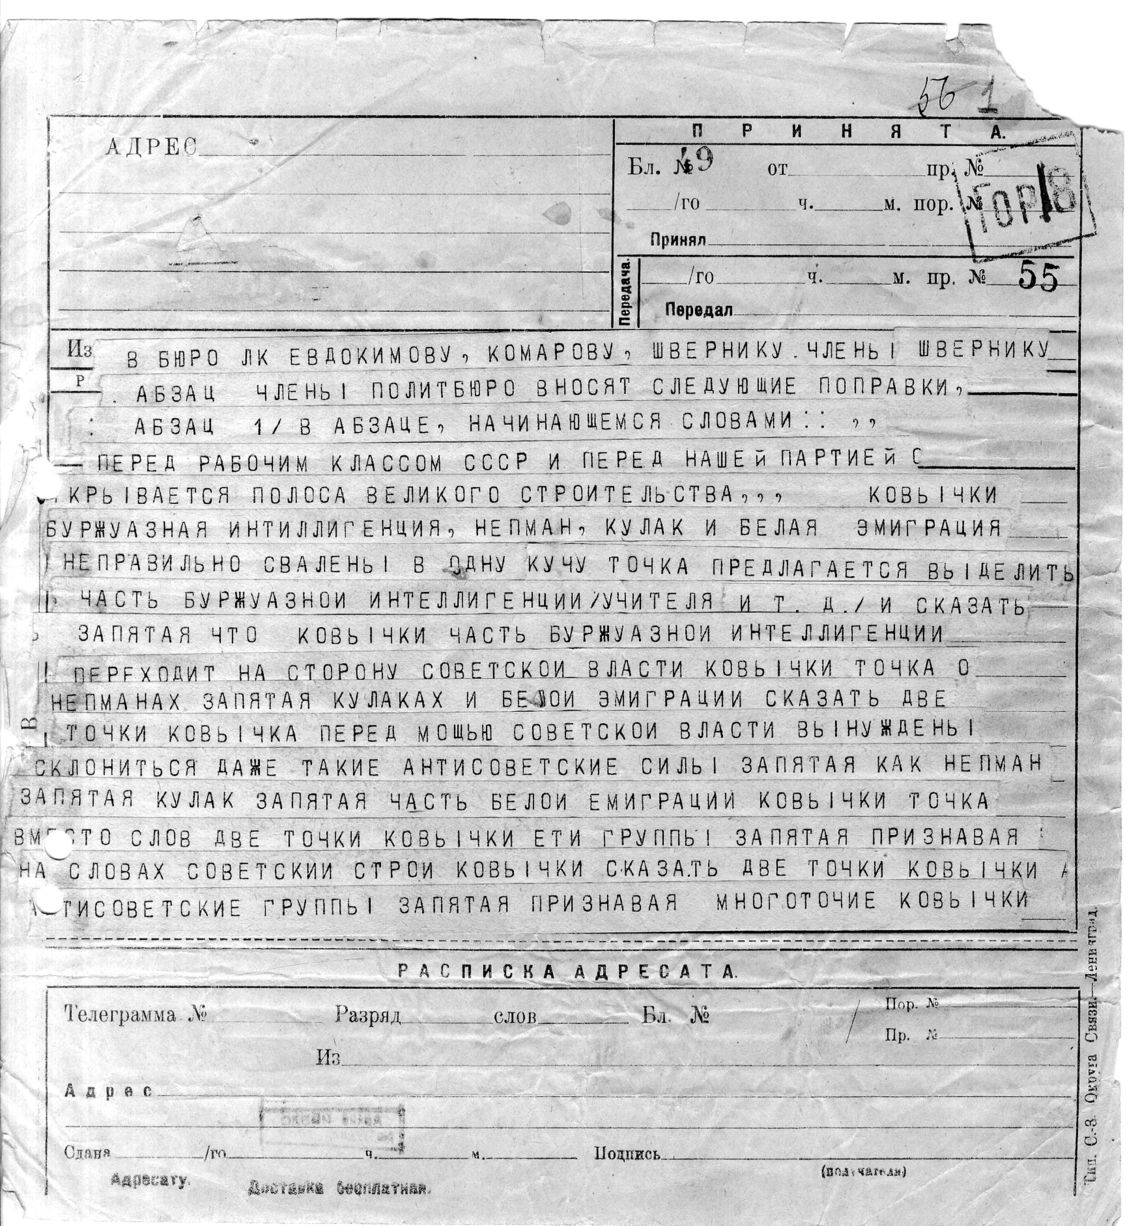 56 1
АДРЕС
ПРИНЯТА.
Бл. № 49 от пр. №
/го ч. м. пор. №
ГОР 18
Принял
Передача.
/го ч. м. пр. № 55
Передал
Из В БЮРО ЛК ЕВДОКИМОВУ, КОМАРОВУ, ШВЕРНИКУ. ЧЛЕНЫ ШВЕРНИКУ
Р . АБЗАЦ ЧЛЕНЫ ПОЛИТБЮРО ВНОСЯТ СЛЕДУЮЩИЕ ПОПРАВКИ,
: АБЗАЦ 1/ В АБЗАЦЕ, НАЧИНАЮЩЕМСЯ СЛОВАМИ:: ,,
ПЕРЕД РАБОЧИМ КЛАССОМ СССР И ПЕРЕД НАШЕЙ ПАРТИЕЙ О
ТКРЫВАЕТСЯ ПОЛОСА ВЕЛИКОГО СТРОИТЕЛЬСТВА,,, КОВЫЧКИ
БУРЖУАЗНАЯ ИНТИЛЛИГЕНЦИЯ, НЕПМАН, КУЛАК И БЕЛАЯ ЭМИГРАЦИЯ
НЕПРАВИЛЬНО СВАЛЕНЫ В ОДНУ КУЧУ ТОЧКА ПРЕДЛАГАЕТСЯ ВЫДЕЛИТЬ
ЧАСТЬ БУРЖУАЗНОИ ИНТЕЛЛИГЕНЦИИ/УЧИТЕЛЯ И Т. Д./ И СКАЗАТЬ
ЗАПЯТАЯ ЧТО КОВЫЧКИ ЧАСТЬ БУРЖУАЗНОИ ИНТЕЛЛИГЕНЦИИ
ПЕРЕХОДИТ НА СТОРОНУ СОВЕТСКОИ ВЛАСТИ КОВЫЧКИ ТОЧКА О
НЕПМАНАХ ЗАПЯТАЯ КУЛАКАХ И БЕЛОИ ЭМИГРАЦИИ СКАЗАТЬ ДВЕ
ТОЧКИ КОВЫЧКА ПЕРЕД МОЩЬЮ СОВЕТСКОИ ВЛАСТИ ВЫНУЖДЕНЫ
СКЛОНИТЬСЯ ДАЖЕ ТАКИЕ АНТИСОВЕТСКИЕ СИЛЫ ЗАПЯТАЯ КАК НЕПМАН
ЗАПЯТАЯ КУЛАК ЗАПЯТАЯ ЧАСТЬ БЕЛОИ ЕМИГРАЦИИ КОВЫЧКИ ТОЧКА
ВМЕСТО СЛОВ ДВЕ ТОЧКИ КОВЫЧКИ ЕТИ ГРУППЫ ЗАПЯТАЯ ПРИЗНАВАЯ
НА СЛОВАХ СОВЕТСКИИ СТРОИ КОВЫЧКИ СКАЗАТЬ ДВЕ ТОЧКИ КОВЫЧКИ А
АНТИСОВЕТСКИЕ ГРУППЫ ЗАПЯТАЯ ПРИЗНАВАЯ МНОГОТОЧИЕ КОВЫЧКИ
РАСПИСКА АДРЕСАТА.
Телеграмма № Разряд слов Бл. № / Пор. №
Пр. №
Из
Адрес
Сдана /го ч. м. Подпись
(получателя)
Адресату. Доставка бесплатная.
Тип. С.-З. Округа Связи.—Ленинград.